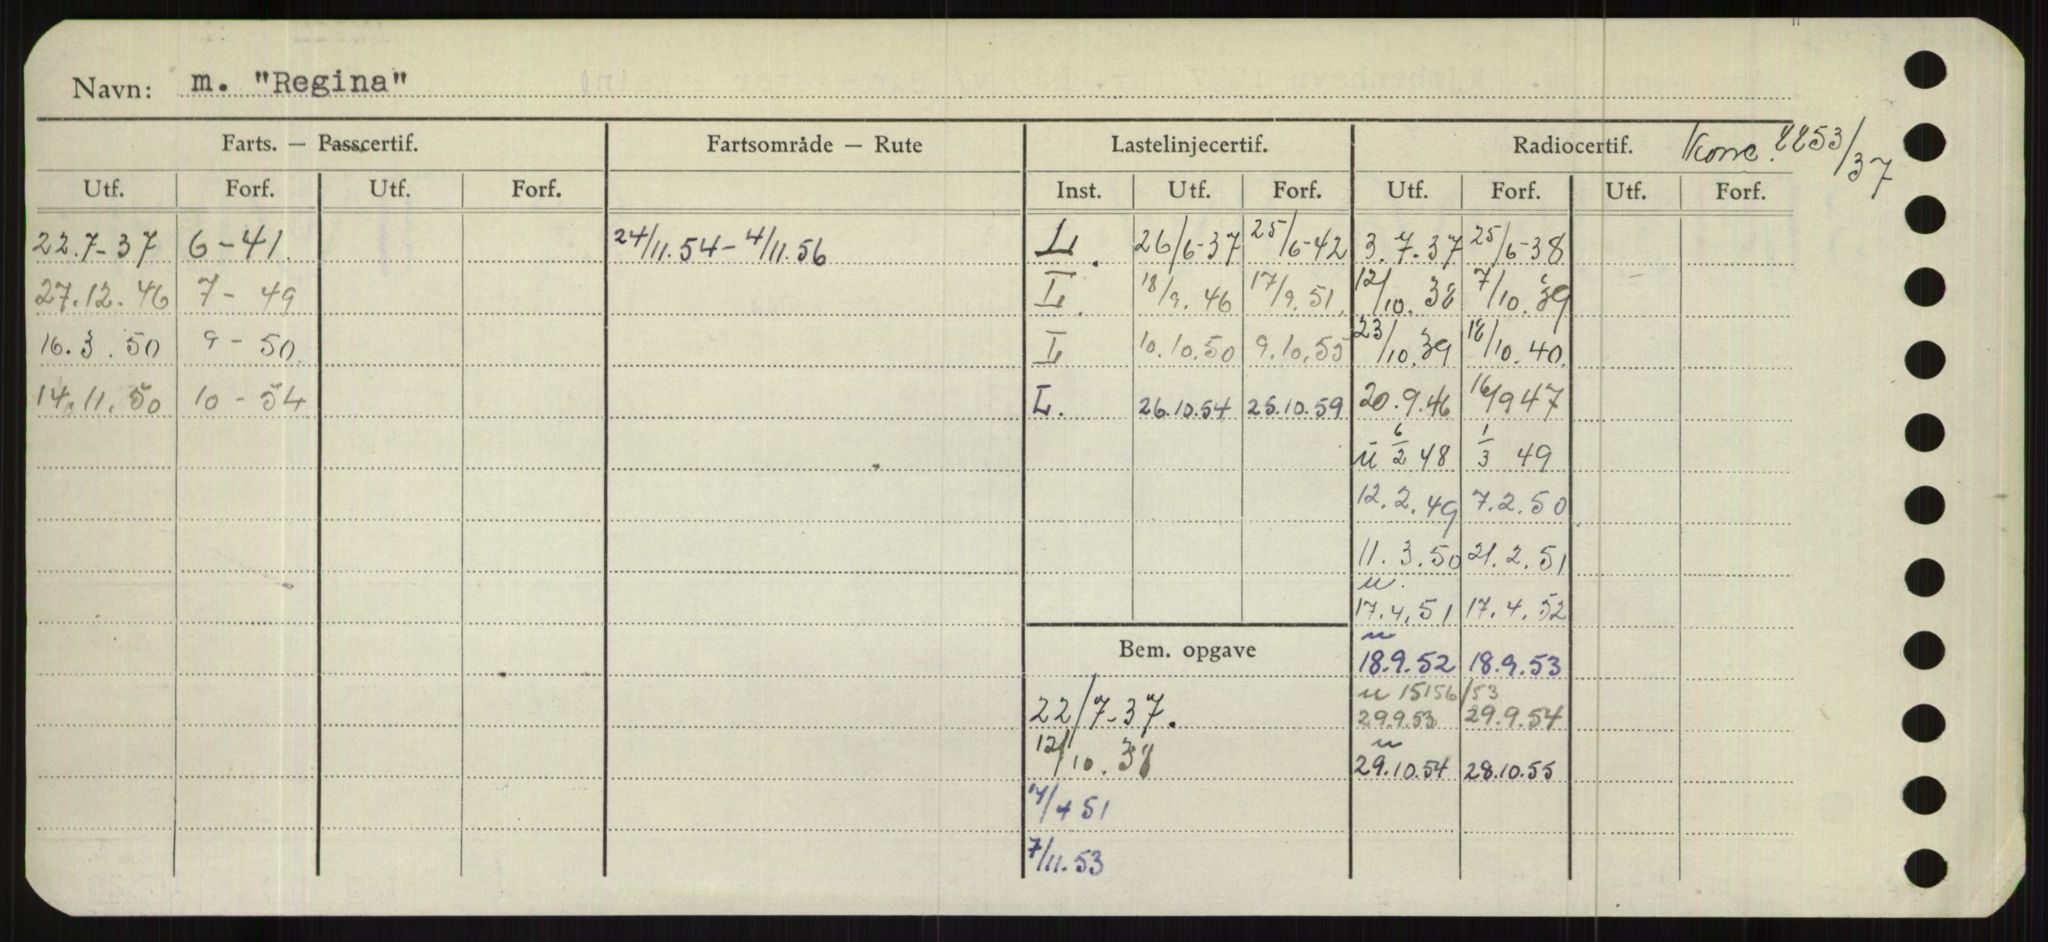 Navn: m. "Regina"
Farts. — Passcertif. Fartsområde — Rute Lastelinjecertif. Radiocertif. 2253/37
Utf. Forf. Utf. Forf. Inst. Utf. Forf. Utf. Forf. Utf. Forf.
22.7-37 6-41. 24/11.54-4/11.56 L. 26/6-37 25/6-42 3.7.37 25/6-38
27.12.46 7-49 L. 18/9.46 17/9.51. 12/10.38 7/10.39
16.3.50 9-50 L 10.10.50 9.10.55 23/10.39 18/10.40.
14.11.50 10-54 L. 26.10.54 25.10.59 20.9.46 16/9 47
u 6/2 48 1/3 49
12.2.49 7.2.50
11.3.50 21.2.51
u.
17.4.51 17.4.52
u
Bem. opgave 18.9.52 18.9.53
u 15156/53
22/7-37. 29.9.53 29.9.54
u
12/10.38 29.10.54 28.10.55
7/4 51
7/11.53